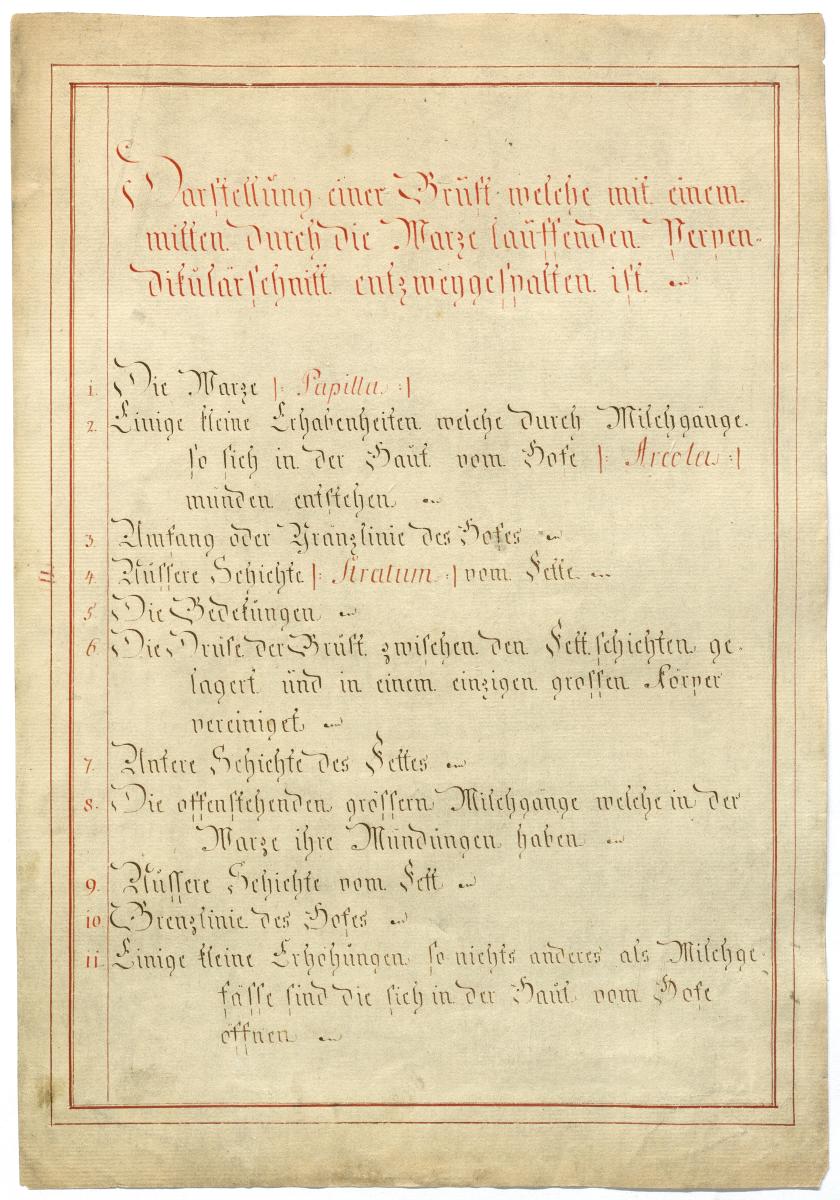 Darstellung einer Brüst welche mit einem
mitten durch die Warze lauffenden Perpen-
dikulärschnitt entzweygespalten ist.
1. Die Warze |: Papilla :|
2. Einige kleine Erhabenheiten welche durch Milchgänge
so sich in der Haut vom Hofe |: Areola :|
münden entstehen
3. Umfang oder Gränzlinie des Hofes
4. Äüssere Schichte |: Stratum :| vom Fette
5 Die Bedekungen
6. Die Drüse der Brüst zwischen den Fettschichten ge-
lagert und in einem einzigen grossen Körper
vereiniget
7. Untere Schichte des Fettes
8. Die offenstehenden grössern Milchgänge welche in der
Warze ihre Mündungen haben
9. Äüssere Schichte vom Fett
10 Grenzlinie des Hofes
11. Einige kleine Erhöhungen so nichts anderes als Milchge-
fässe sind die sich in der Haut vom Hofe
öffnen